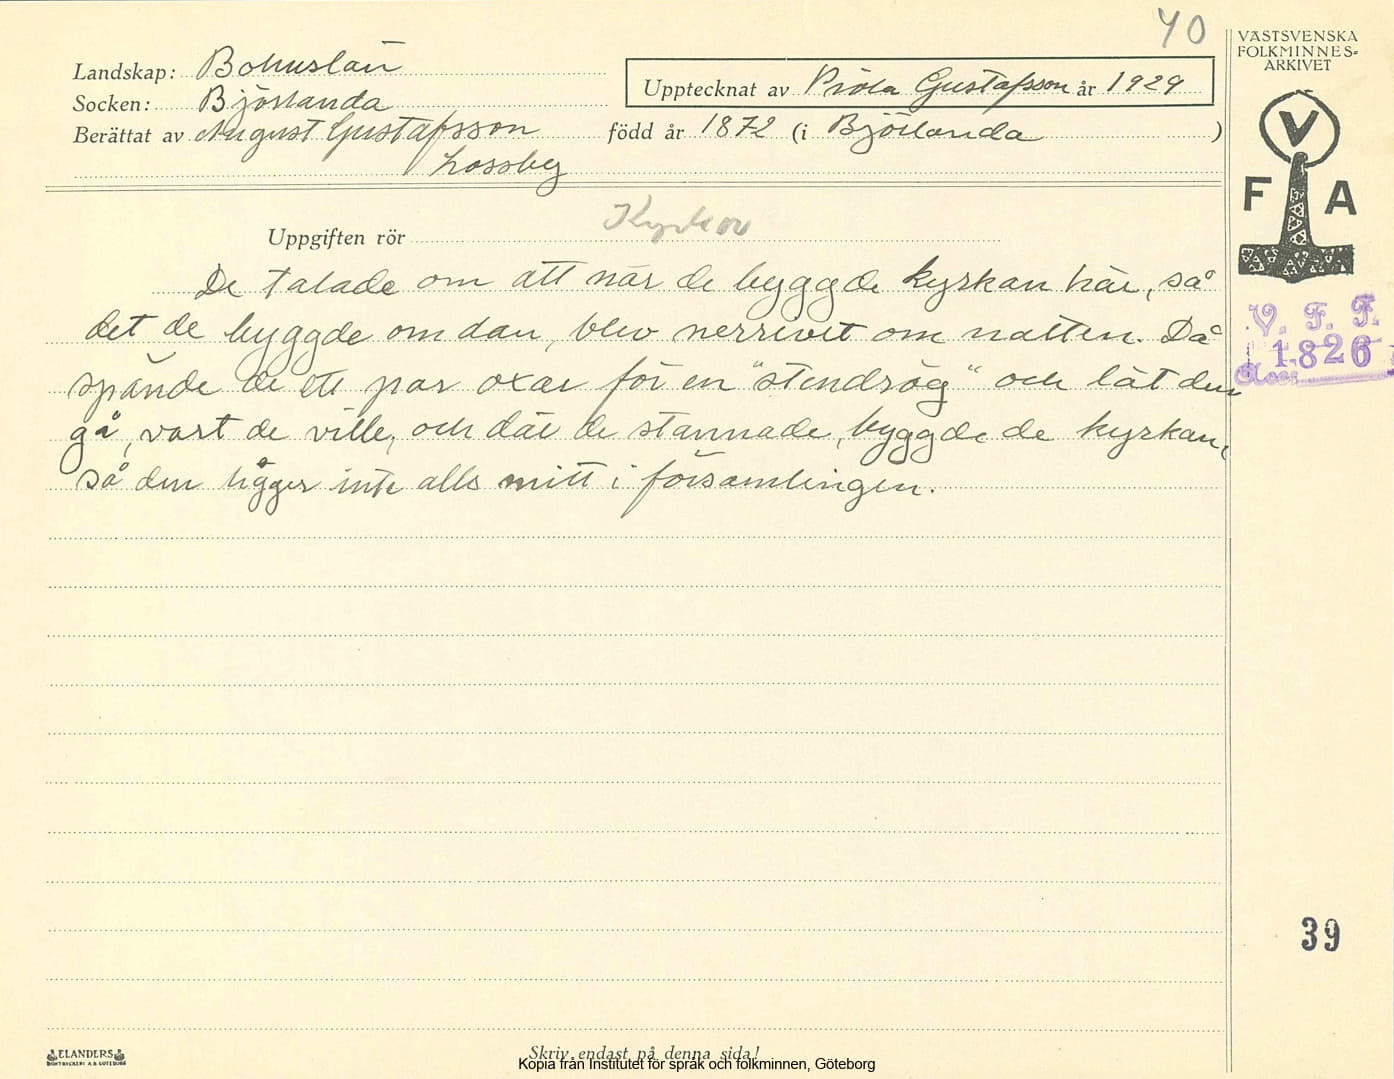 40
VÄSTSVENSKA
FOLKMINNES-
ARKIVET
Landskap: Bohuslän
Upptecknat av Viola Gustafsson år 1929
Socken: Björlanda
Berättat av August Gustafsson född år 1872 (i Björlanda)
Lossby
V
F A
Uppgiften rör Kyrkor
De talade om att när de byggde kyrkan här, så
det de byggde om dan, blev nerrivet om natten. Då
spände de ett par oxar för en "stendrög" och lät dem
gå, vart de ville, och där de stannade, byggde de kyrkan,
så den ligger inte alls mitt i församlingen.
V. F. F.
1826
Acc:
39
ELANDERS
BOKTRYCKERI A.B. GÖTEBORG
Skriv endast på denna sida!
Kopia från Institutet för språk och folkminnen, Göteborg